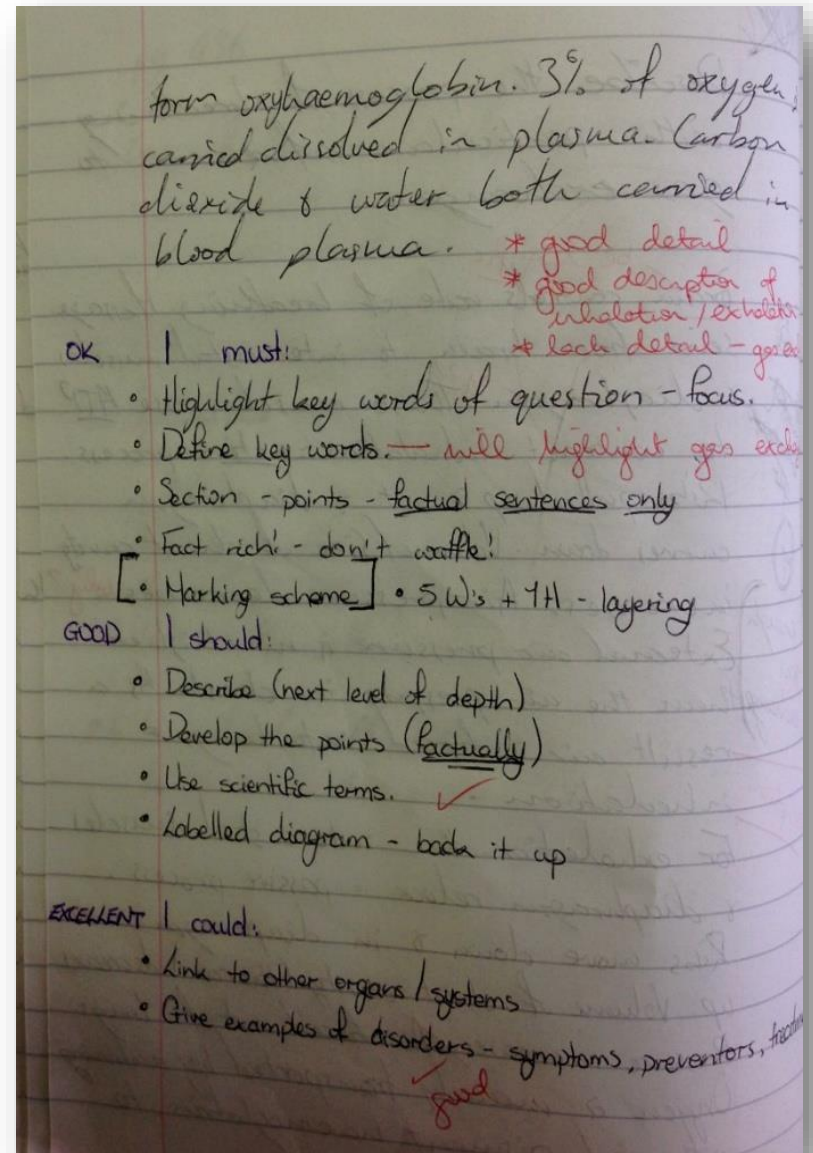 form oxyhaemoglobin. 3% of oxygen
carried dissolved in plasma. Carbon
dioxide & water both carried in
blood plasma.
* good detail
* good description of
inhalation / exhalation
* lack detail - gas
OK I must:
• Highlight key words of question - focus.
• Define key words. — will highlight gas
• Section - points - factual sentences only
• Fact rich! - don't waffle!
[• Marking scheme] • 5 W's + 1H - layering
GOOD I should:
• Describe (next level of depth)
• Develop the points (factually)
• Use scientific terms. ✓
• Labelled diagram - back it up
EXCELLENT I could:
• Link to other organs / systems
• Give examples of disorders - symptoms, preventors,
✓ good